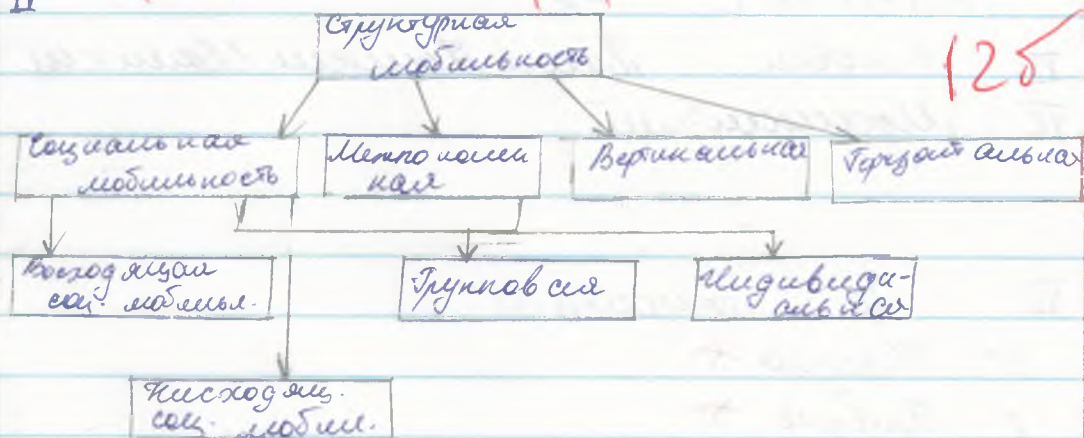 II
Структурная
мобильность
12б
Социальная
мобильность
Межпоколен
ная
Вертикальная
Горизонтальная
Восходящая
соц. мобильн.
Групповая
Индивиди-
альная
Нисходящ.
соц. мобил.